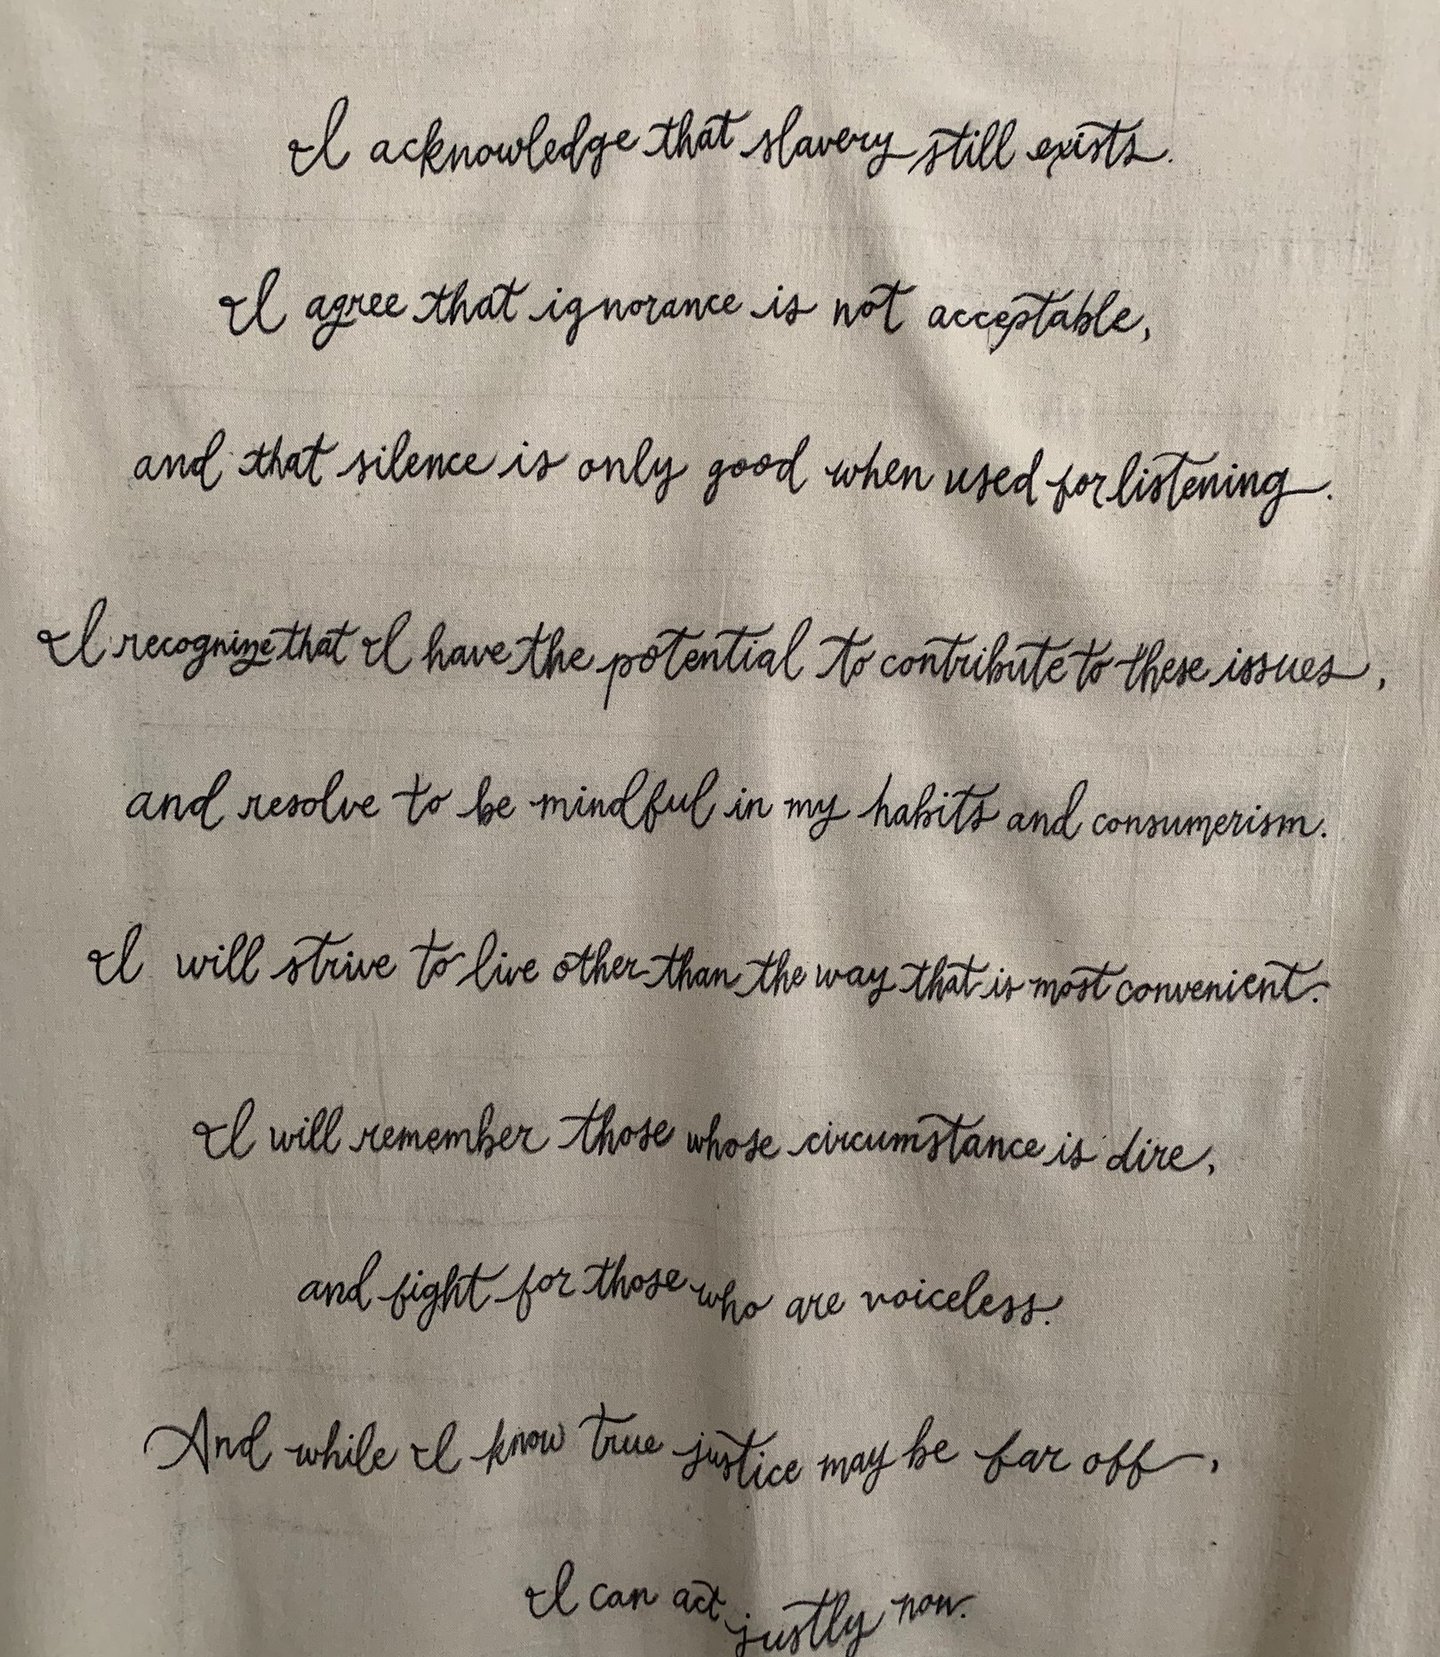 I acknowledge that slavery still exists.
I agree that ignorance is not acceptable,
and that silence is only good when used for listening.
I recognize that I have the potential to contribute to these issues,
and resolve to be mindful in my habits and consumerism.
I will strive to live other than the way that is most convenient.
I will remember those whose circumstance is dire,
and fight for those who are voiceless.
And while I know true justice may be far off,
I can act justly now.